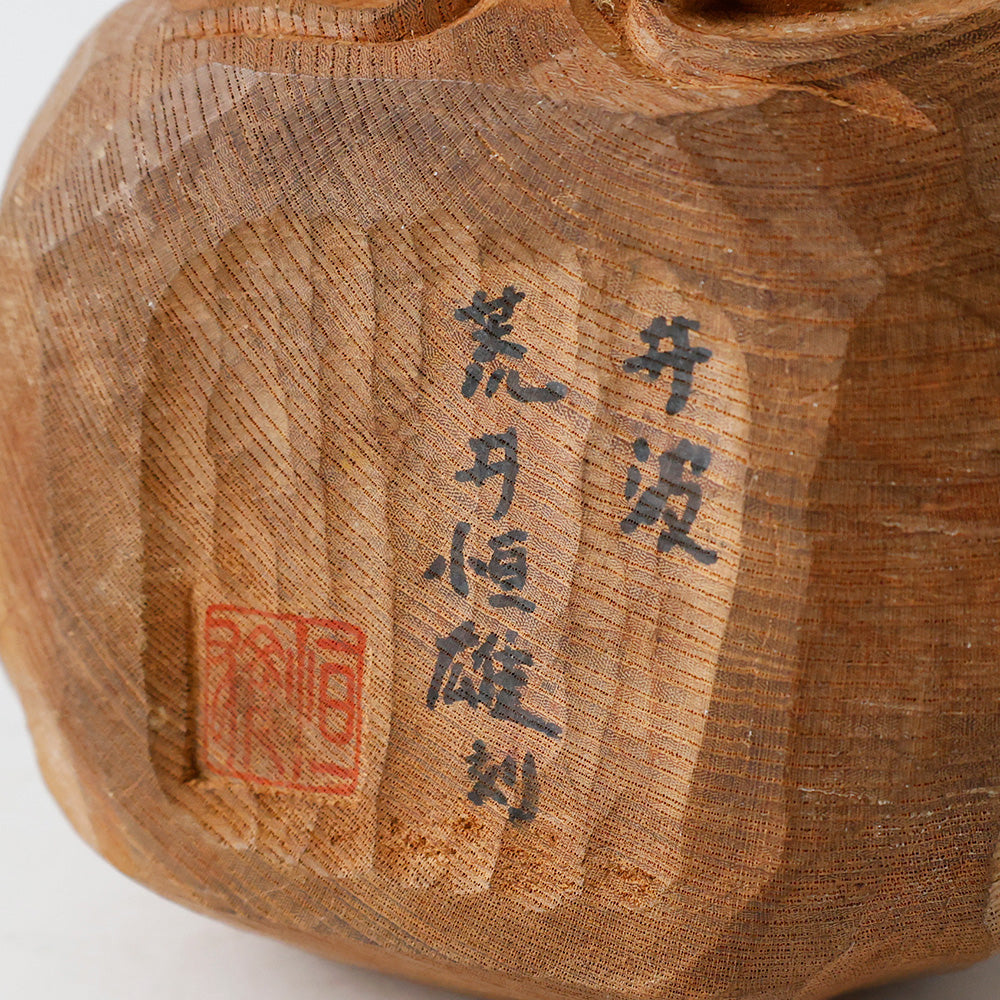 井波
荒井恒雄刻